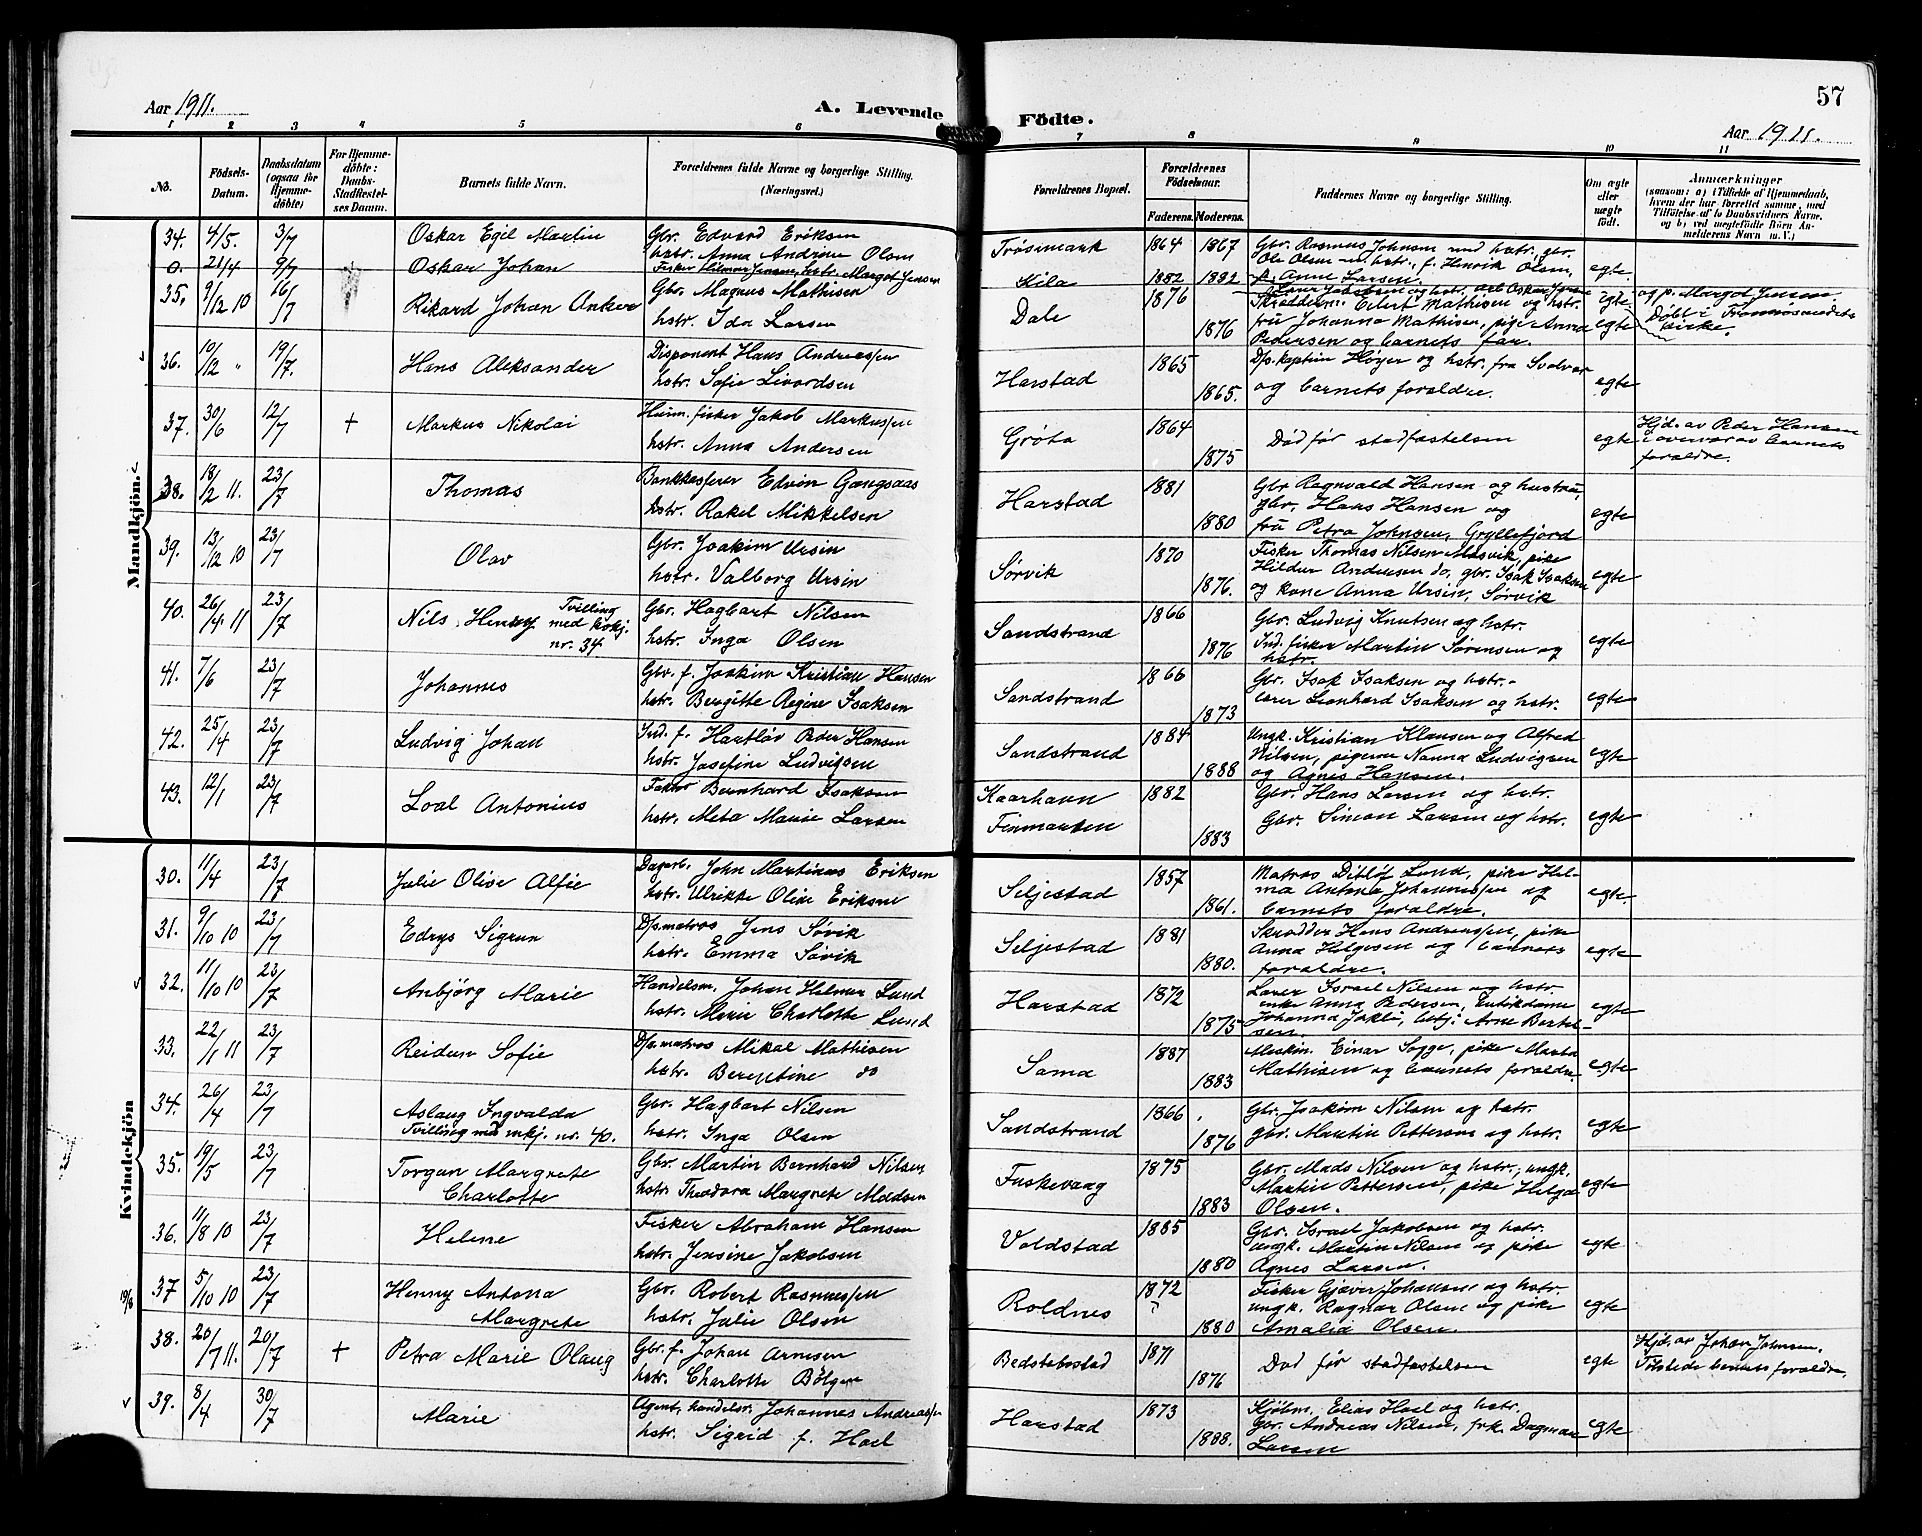 57
Aar 1911.
A. Levende Födte.
Aar 1911.
1 2 3 4 5 6 7 8 9 10 11
No.
Födsels-Datum.
Daabsdatum (ogsaa for Hjemme-döbte)
For Hjemme-döbte: Daabs-Stadfæstel-ses Datum.
Barnets fulde Navn.
Forældrenes fulde Navne og borgerlige Stilling. (Næringsvei.)
Forældrenes Bopæl.
Forældrenes Födselsaar.
Faderens. Moderens.
Faddernes Navne og borgerlige Stilling.
Om ægte eller uægte födt.
Anmærkninger
(saasom: a) i Tilfælde af Hjemmedaab, hvem der har forrettet samme, med Tilföielse af to Daabsvidners Navne, og b) ved uægtefödte Börn An-melderens Navn m. V.)
Mandkjön.
34. 4/5. 3/7 Oskar Egil Martin Gbr. Edvard Eriksen Trøsemark 1864 1867 Gbr. Rasmus Johnsen med hstr., gbr.
hstr. Anna Andrine Olsen Ole Olsen m. hstr., f. Henrik Olsen, egte.
0. 21/4 9/7 Oskar Johan Fisker Hilmar Jensen, hstr. Margot Jensen Kila 1882 1882 p. Anne Larsen.
og p. Margot Jensen.
35. 9/12 10 16/7 Rikard Johan Anker Gbr. Magnus Mathisen Dale 1876 Skrædderm. Eilert Mathisen og hstr. egte Døbt i Tromøsundets kirke.
hstr. Ida Larsen 1876 fru Johanna Mathisen, pige Anna egte
Pedersen og barnets far.
36. 10/12 " 19/7. Hans Aleksander Disponent Hans Andreassen Harstad 1865 D/s.kaptein Høyer og hstr. fra Svolvær
hstr. Sofie Sivordsen 1865. og barnets foraldre. egte
37. 30/6 12/7 + Markus Nikolai fisker Jakob Markussen Grøta 1864 Død før stadfæstelsen egte Hjd. av Peder Hansen
hstr. Anna Andersen 1875 i overvær av barnets foraldre.
38. 18/2 11. 23/7 Thomas Bankkasserer Edvin Gangsaas Harstad 1881 Gbr Ragnvald Hansen og hustru,
hstr. Rakel Mikkelsen 1880 gbr. Hans Hansen og egte
fru Petra Johnsen, Gryllefjord
39. 13/12 10 23/7 Olav Gbr. Joakim Ursin Sørvik 1870 Fisker Thomas Nilsen Masvik, pike
hstr. Valborg Ursin 1876. Hildur Andersen do, gbr. Isak Isaksen egte
og kone Anna Ursin, Sørvik
40. 26/4 11 23/7 Nils Henry Tvilling med kvkj. nr. 34. Gbr. Hagbart Nilsen Sandstrand 1866 Gbr. Ludvig Knutsen og hstr.
hstr. Inga Olsen 1876 Ind. fisker Martin Sørensen og hstr. egte
41. 7/6 23/7 Johannes Gbr. f. Joakim Kristian Hansen Sandstrand 1866 Gbr. Isak Isaksen og hstr.-
hstr. Bergitte Regine Isaksen 1873 lærer Leonhard Isaksen og hstr. egte
42. 25/4 23/7 Ludvig Johan Ind. f. Hartløv Peder Hansen Sandstrand 1884 Ungk. Kristian Klausen og Alfred
hstr. Josefine Ludvigsen 1888 Nilsen, pigerne Nanna Ludvigsen egte
og Agnes Hansen.
43. 12/1 23/7 Loal Antonius Fisker Bernhard Isaksen Kaarhavn 1882 Gbr. Hans Larsen og hstr.
hstr. Meta Marie Larsen Finmarken 1883 Gbr. Simon Larsen og hstr. egte
Kvindekjön
30. 11/4 23/7 Julie Olise Alfie Dagarb. John Martinus Eriksen Seljestad 1857 Matros Ditløf Lund, pike Hel-
hstr. Ulrikke Oline Eriksen 1861. ma Antona Johannessen og egte
barnets foraldre.
31. 9/10 10 23/7 Edrys Sigrun D/s.matros Jens Søvik Seljestad 1881 Skrædder Hans Andreassen, pike
hstr. Emma Søvik 1880. Anna Helgesen og barnets egte
foraldre.
32. 11/10 10 23/7 Anbjørg Marie Handelsm. Johan Helmer Lund Harstad 1872 Lærer Israel Nilsen og hstr.
hstr. Marie Charlotte Lund 1875 enke Anna Pedersen, butikdame egte
Johanna Jakli, betj. Arne Bertel-
sen.
33. 22/1 11 23/7 Reidun Sofie D/s.matros Mikal Mathisen Sama 1887 Maskin. Einar Sagge, pike Marta
hstr. Bereptine do 1883 Mathisen og barnets foraldre. egte
34. 26/4 23/7 Aslaug Ingvalda Gbr. Hagbart Nilsen Sandstrand 1866 Gbr. Joakim Nilsen og hstr.
Tvilling med mkj. nr. 40. hstr. Inga Olsen 1876 gbr. Martin Pettersen og hstr. egte
35. 19/5 23/7 Torgun Margrete Gbr. Martin Bernhard Nilsen Fuskevaag 1875 Gbr. Mads Nilsen og hstr., ungk.
Charlotte hstr. Theodora Margrete Madsen 1883 Martin Pettersen, pike Helga egte
Olsen.
36. 11/8 10 23/7 Helene Fisker Abraham Hansen Voldstad 1885 Gbr. Israel Jakobsen og hstr.
hstr. Jensine Jakobsen 1880 ungk. Martin Nilsen og pike egte
Agnes Larsen.
19/8 37 5/10 10 23/7 Henny Antona Gbr. Robert Rasmussen Roldnes 1872 ? Fisker Gjæver Johansen og hstr.
Margrete hstr. Julie Olsen 1880 ungk. Ragnar Olsen og pike egte
Amalia Olsen.
38. 20/7 11. 20/7 + Petra Marie Olaug Gbr. f. Johan Arnesen Bedstebostad 1871 Død før stadfæstelsen egte Hjd. av Johan Johnsen.
hstr. Charlotte Bölgen 1876 Tilstede barnets foraldre.
39. 8/4 30/7 Marie Agent, handelsr. Johannes Andreassen Harstad 1873 Kjøbm. Elias Hoel og hstr.
hstr. Sigrid f. Hoel 1888. Gbr. Andreas Nilsen, frk. Dagmar egte
Larsen